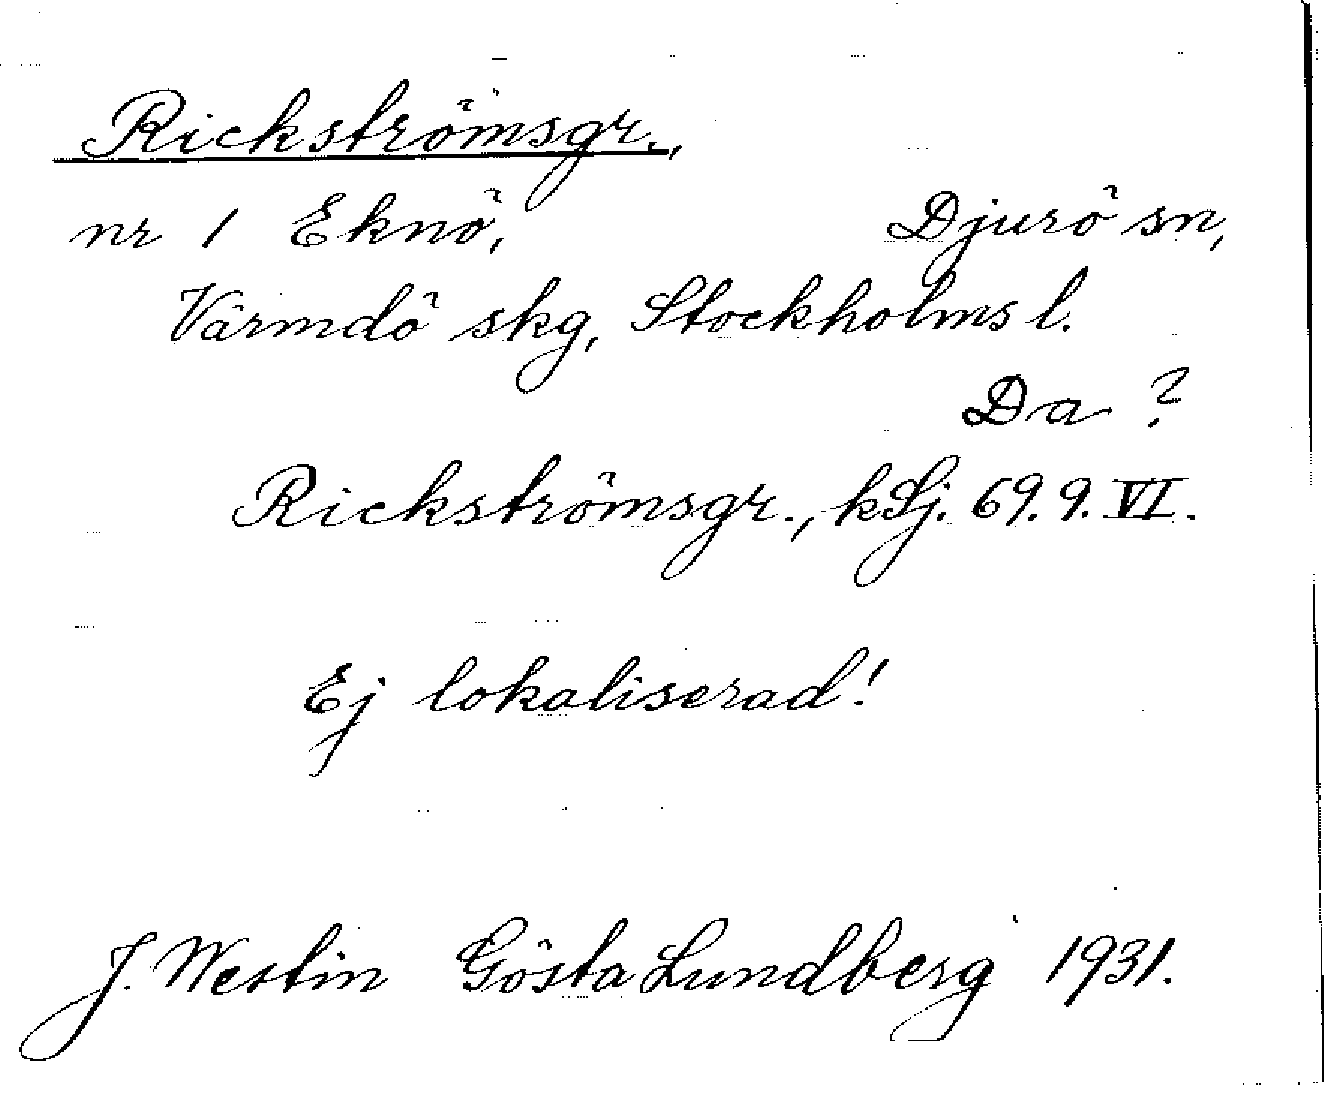 Rickströmsgr.,
nr 1 Eknö, Djurö sn,
Värmdö skg, Stockholms l.
Da ?
Rickströmsgr., kSj. 69. 9. VI.
Ej lokaliserad!
J. Westin Gösta Lundberg 1931.